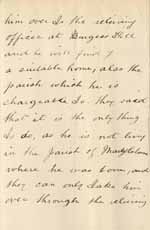 him over to the relieving
officer at Burgess Hill
and he will find
a suitable home, also the
parish which he is
chargeable to. they said
that it is the only thing
to do, as he is not living
in the parish of
where he was born, and
they can only take him
over through the relieving